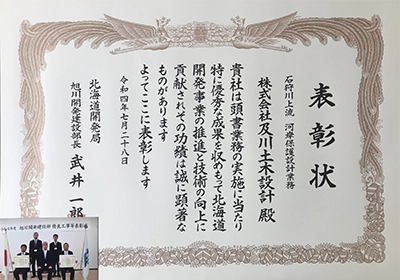 表彰状
石狩川上流 河岸保護設計業務
株式会社及川土木設計 殿
貴社は頭書業務の実施に当たり
特に優秀な成果を収めもって北海道
開発事業の推進と技術の向上に
貢献されその功績は誠に顕著な
ものがあります
よってここに表彰します
令和四年七月二十八日
北海道開発局
旭川開発建設部長 武井一郎
旭川開発建設部 優良工事等表彰式